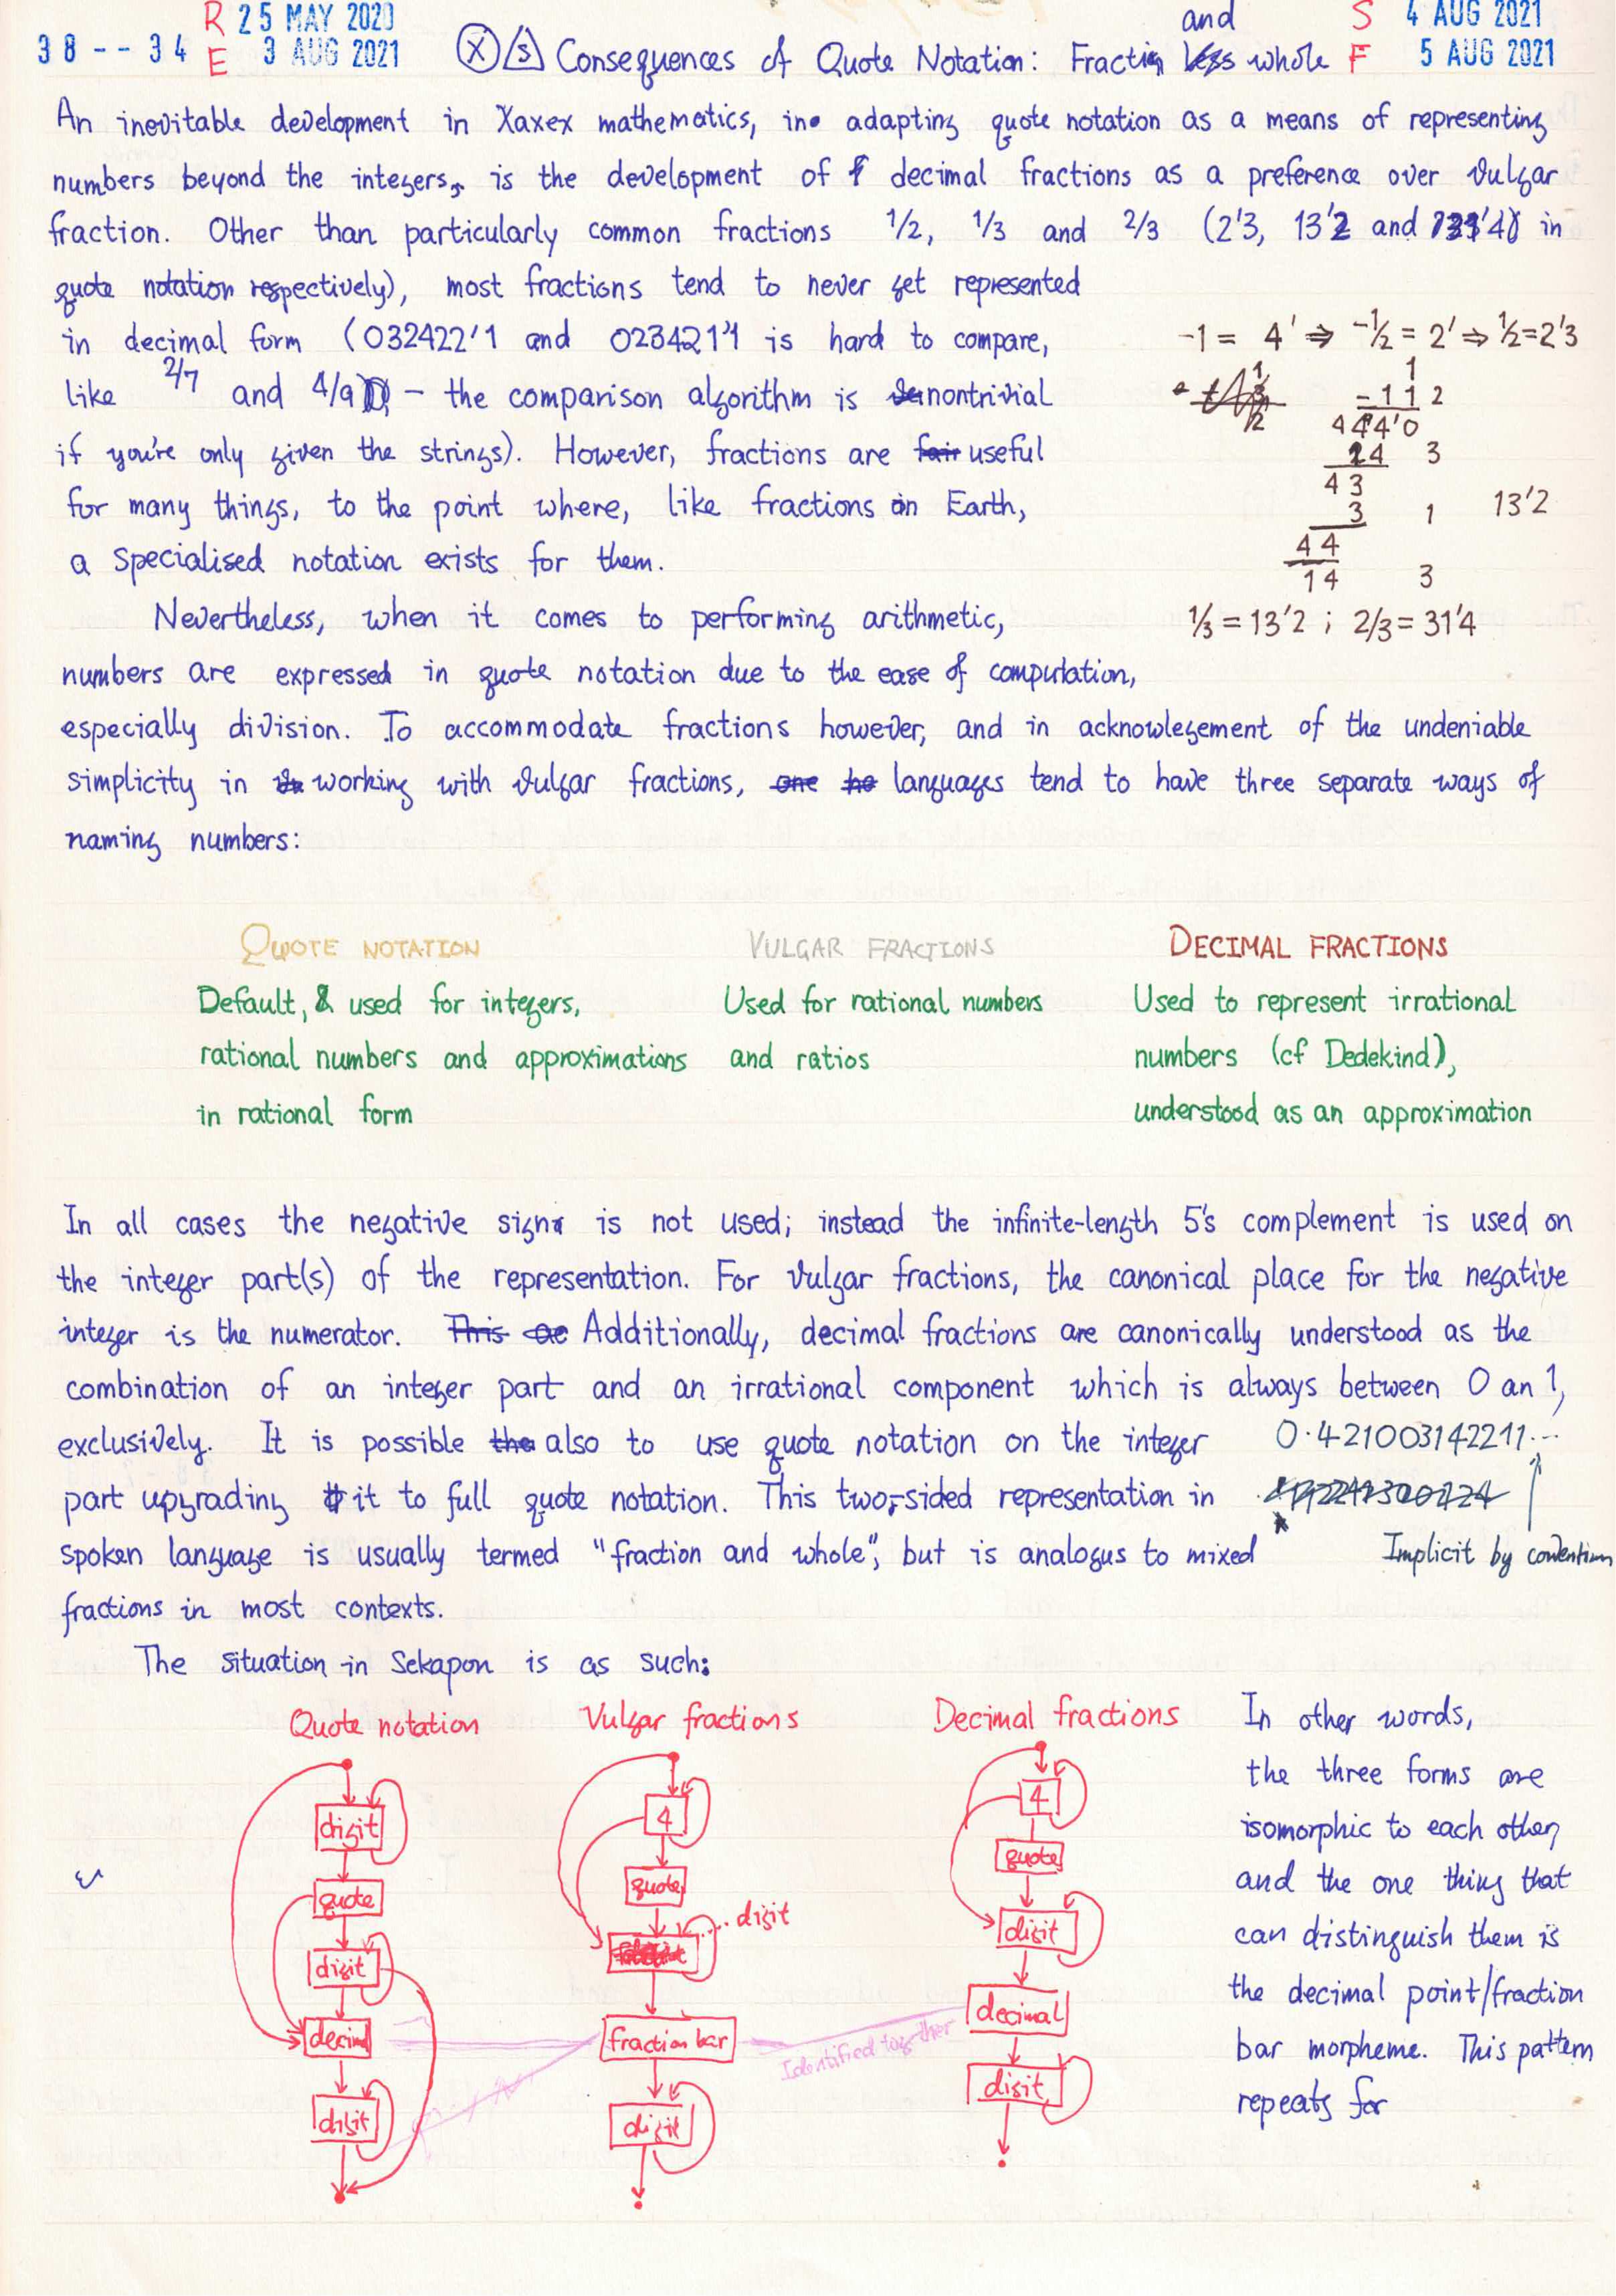 R 25 MAY 2020
38--34 E 3 AUG 2021
X S Consequences of Quote Notation: Fraction and whole
S 4 AUG 2021
F 5 AUG 2021
An inevitable development in Xaxex mathematics, in adapting quote notation as a means of representing
numbers beyond the integers, is the development of decimal fractions as a preference over vulgar
fraction. Other than particularly common fractions 1/2, 1/3 and 2/3 (2'3, 13'2 and in
quote notation respectively), most fractions tend to never get represented
in decimal form (032422'1 and 023421'1 is hard to compare,
like 2/7 and 4/9 – the comparison algorithm is nontrivial
if you're only given the strings). However, fractions are useful
for many things, to the point where, like fractions on Earth,
a specialised notation exists for them.
-1 = 4' ⇒ -1/2 = 2' ⇒ 1/2=2'3
1
-11 2
444'0
24 3
43
3 1 13'2
44
14 3
1/3 = 13'2 ; 2/3 = 31'4
Nevertheless, when it comes to performing arithmetic,
numbers are expressed in quote notation due to the ease of computation,
especially division. To accommodate fractions however, and in acknowlegement of the undeniable
simplicity in working with vulgar fractions, languages tend to have three separate ways of
naming numbers:
QUOTE NOTATION
Default, & used for integers,
rational numbers and approximations
in rational form
VULGAR FRACTIONS
Used for rational numbers
and ratios
DECIMAL FRACTIONS
Used to represent irrational
numbers (cf Dedekind),
understood as an approximation
In all cases the negative sign is not used; instead the infinite-length 5's complement is used on
the integer part(s) of the representation. For vulgar fractions, the canonical place for the negative
integer is the numerator. Additionally, decimal fractions are canonically understood as the
combination of an integer part and an irrational component which is always between 0 an 1,
exclusively. It is possible also to use quote notation on the integer
part upgrading it to full quote notation. This two-sided representation in
spoken language is usually termed "fraction and whole", but is analogus to mixed
fractions in most contexts.
0.421003142211...
Implicit by convention
The situation in Sekapon is as such:
Quote notation
digit
quote
digit
decimal
digit
Vulgar fractions
4
quote
digit
fraction bar
digit
Identified together
Decimal fractions
4
quote
digit
decimal
digit
In other words,
the three forms are
isomorphic to each other,
and the one thing that
can distinguish them is
the decimal point/fraction
bar morpheme. This pattern
repeats for